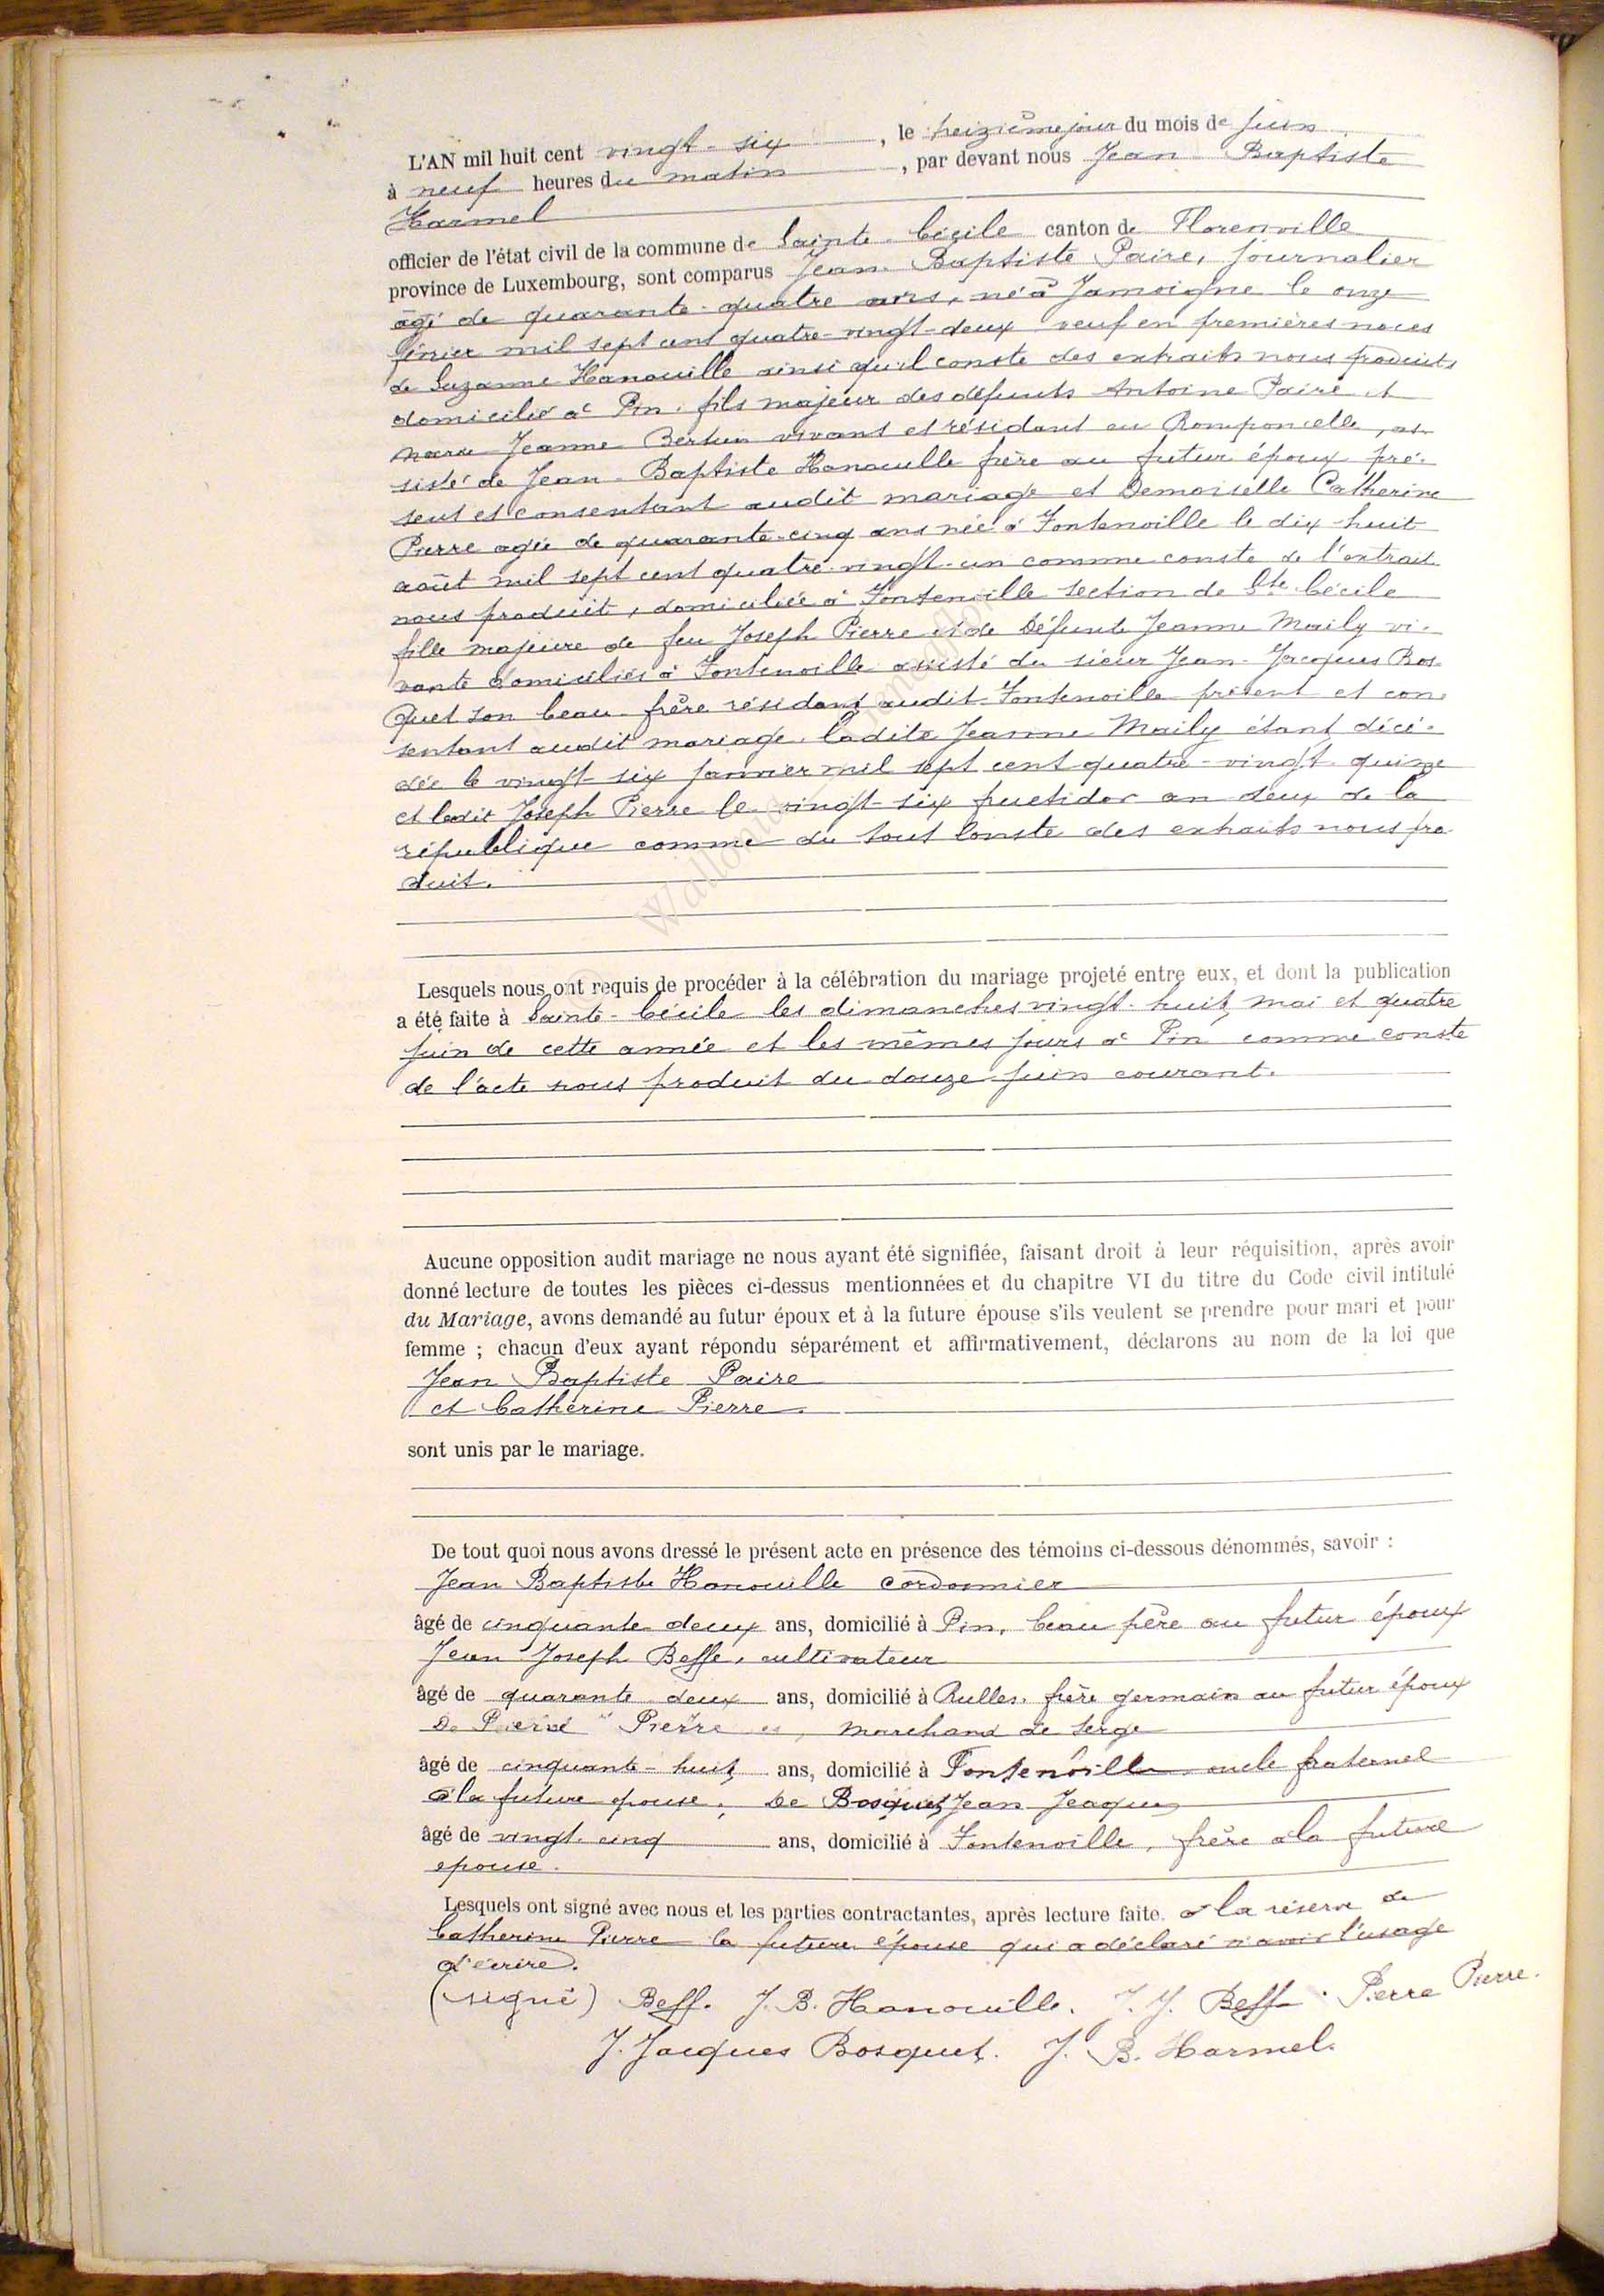 L'AN mil huit cent vingt-six, le treizième jour du mois de juin
à neuf heures du matin, par devant nous Jean Baptiste
Harmel
officier de l'état civil de la commune de Sainte-Cécile canton de Florenville
province de Luxembourg, sont comparus Jean Baptiste Paire, journalier
âgé de quarante-quatre ans, né à Jamoigne le onze
février mil sept cent quatre-vingt-deux veuf en premières noces
de Suzanne Hanouille ainsi qu'il conste des extraits nous produits
domicilié à Pin, fils majeur des défunts Antoine Paire et
Jeanne vivant et résidant au Romponcelle, as-
sisté de Jean-Baptiste Hanouille frère au futur époux pré-
sent et consentant audit mariage et Demoiselle Catherine
Pierre agée de quarante-cinq ans née à Fontenoille le dix-huit
août mil sept cent quatre-vingt-un comme conste de l'extrait
nous produit, domiciliée à Fontenoille section de Ste Cécile
fille majeure de feu Joseph Pierre et de Défunte Jeanne Maily vi-
vants domiciliés à Fontenoille assisté du sieur Jean-Jacques Bos-
quet son beau-frère résidant audit Fontenoille présent et con-
sentant audit mariage. ladite Jeanne Maily étant décé-
dée le vingt-six janvier mil sept cent quatre-vingt-quinze
et ledit Joseph Pierre le vingt-six fructidor an deux de la
république comme du tout conste des extraits nous pro-
duit.
Lesquels nous ont requis de procéder à la célébration du mariage projeté entre eux, et dont la publication
a été faite à Sainte-Cécile les dimanches vingt-huit mai et quatre
juin de cette année et les mêmes jours à Pin comme conste
de l'acte nous produit du douze juin courant.
Aucune opposition audit mariage ne nous ayant été signifiée, faisant droit à leur réquisition, après avoir
donné lecture de toutes les pièces ci-dessus mentionnées et du chapitre VI du titre du Code civil intitulé
du Mariage, avons demandé au futur époux et à la future épouse s'ils veulent se prendre pour mari et pour
femme ; chacun d'eux ayant répondu séparément et affirmativement, déclarons au nom de la loi que
Jean Baptiste Paire
et Catherine Pierre.
sont unis par le mariage.
De tout quoi nous avons dressé le présent acte en présence des témoins ci-dessous dénommés, savoir :
Jean Baptiste Hanouille cordonnier
âgé de cinquante deux ans, domicilié à Pin, beau père au futur époux
Jean Joseph Beffe, cultivateur
âgé de quarante deux ans, domicilié à Rulles, frère germain au futur époux
De Pierre Pierre, marchand de serge
âgé de cinquante-huit ans, domicilié à Fontenoille oncle fraternel
à la future epouse, De Bosquet Jean Jeaques
âgé de vingt-cinq ans, domicilié à Fontenoille, frère à la future
epouse.
Lesquels ont signé avec nous et les parties contractantes, après lecture faite, à la réserve de
Catherine Pierre la future épouse qui a déclaré n'avoir l'usage
d'écrire.
(signé) Beff. J. B. Hanouille. J. J. Beffe. Pierre Pierre.
J. Jacques Bosquet. J. B. Harmel.